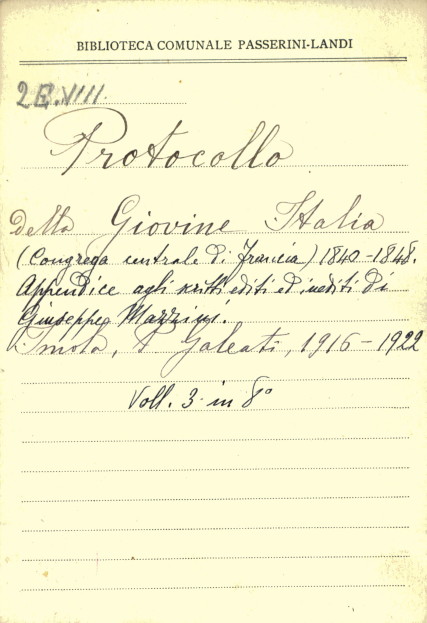 BIBLIOTECA COMUNALE PASSERINI-LANDI
2E.VIII.
Protocollo
della Giovine Italia
(Congrega centrale di Francia) 1840-1848.
Appendice agli scritti editi ed inediti di
Giuseppe Mazzini.
Imola, P Galeati, 1916-1922
Voll. 3 in 8°